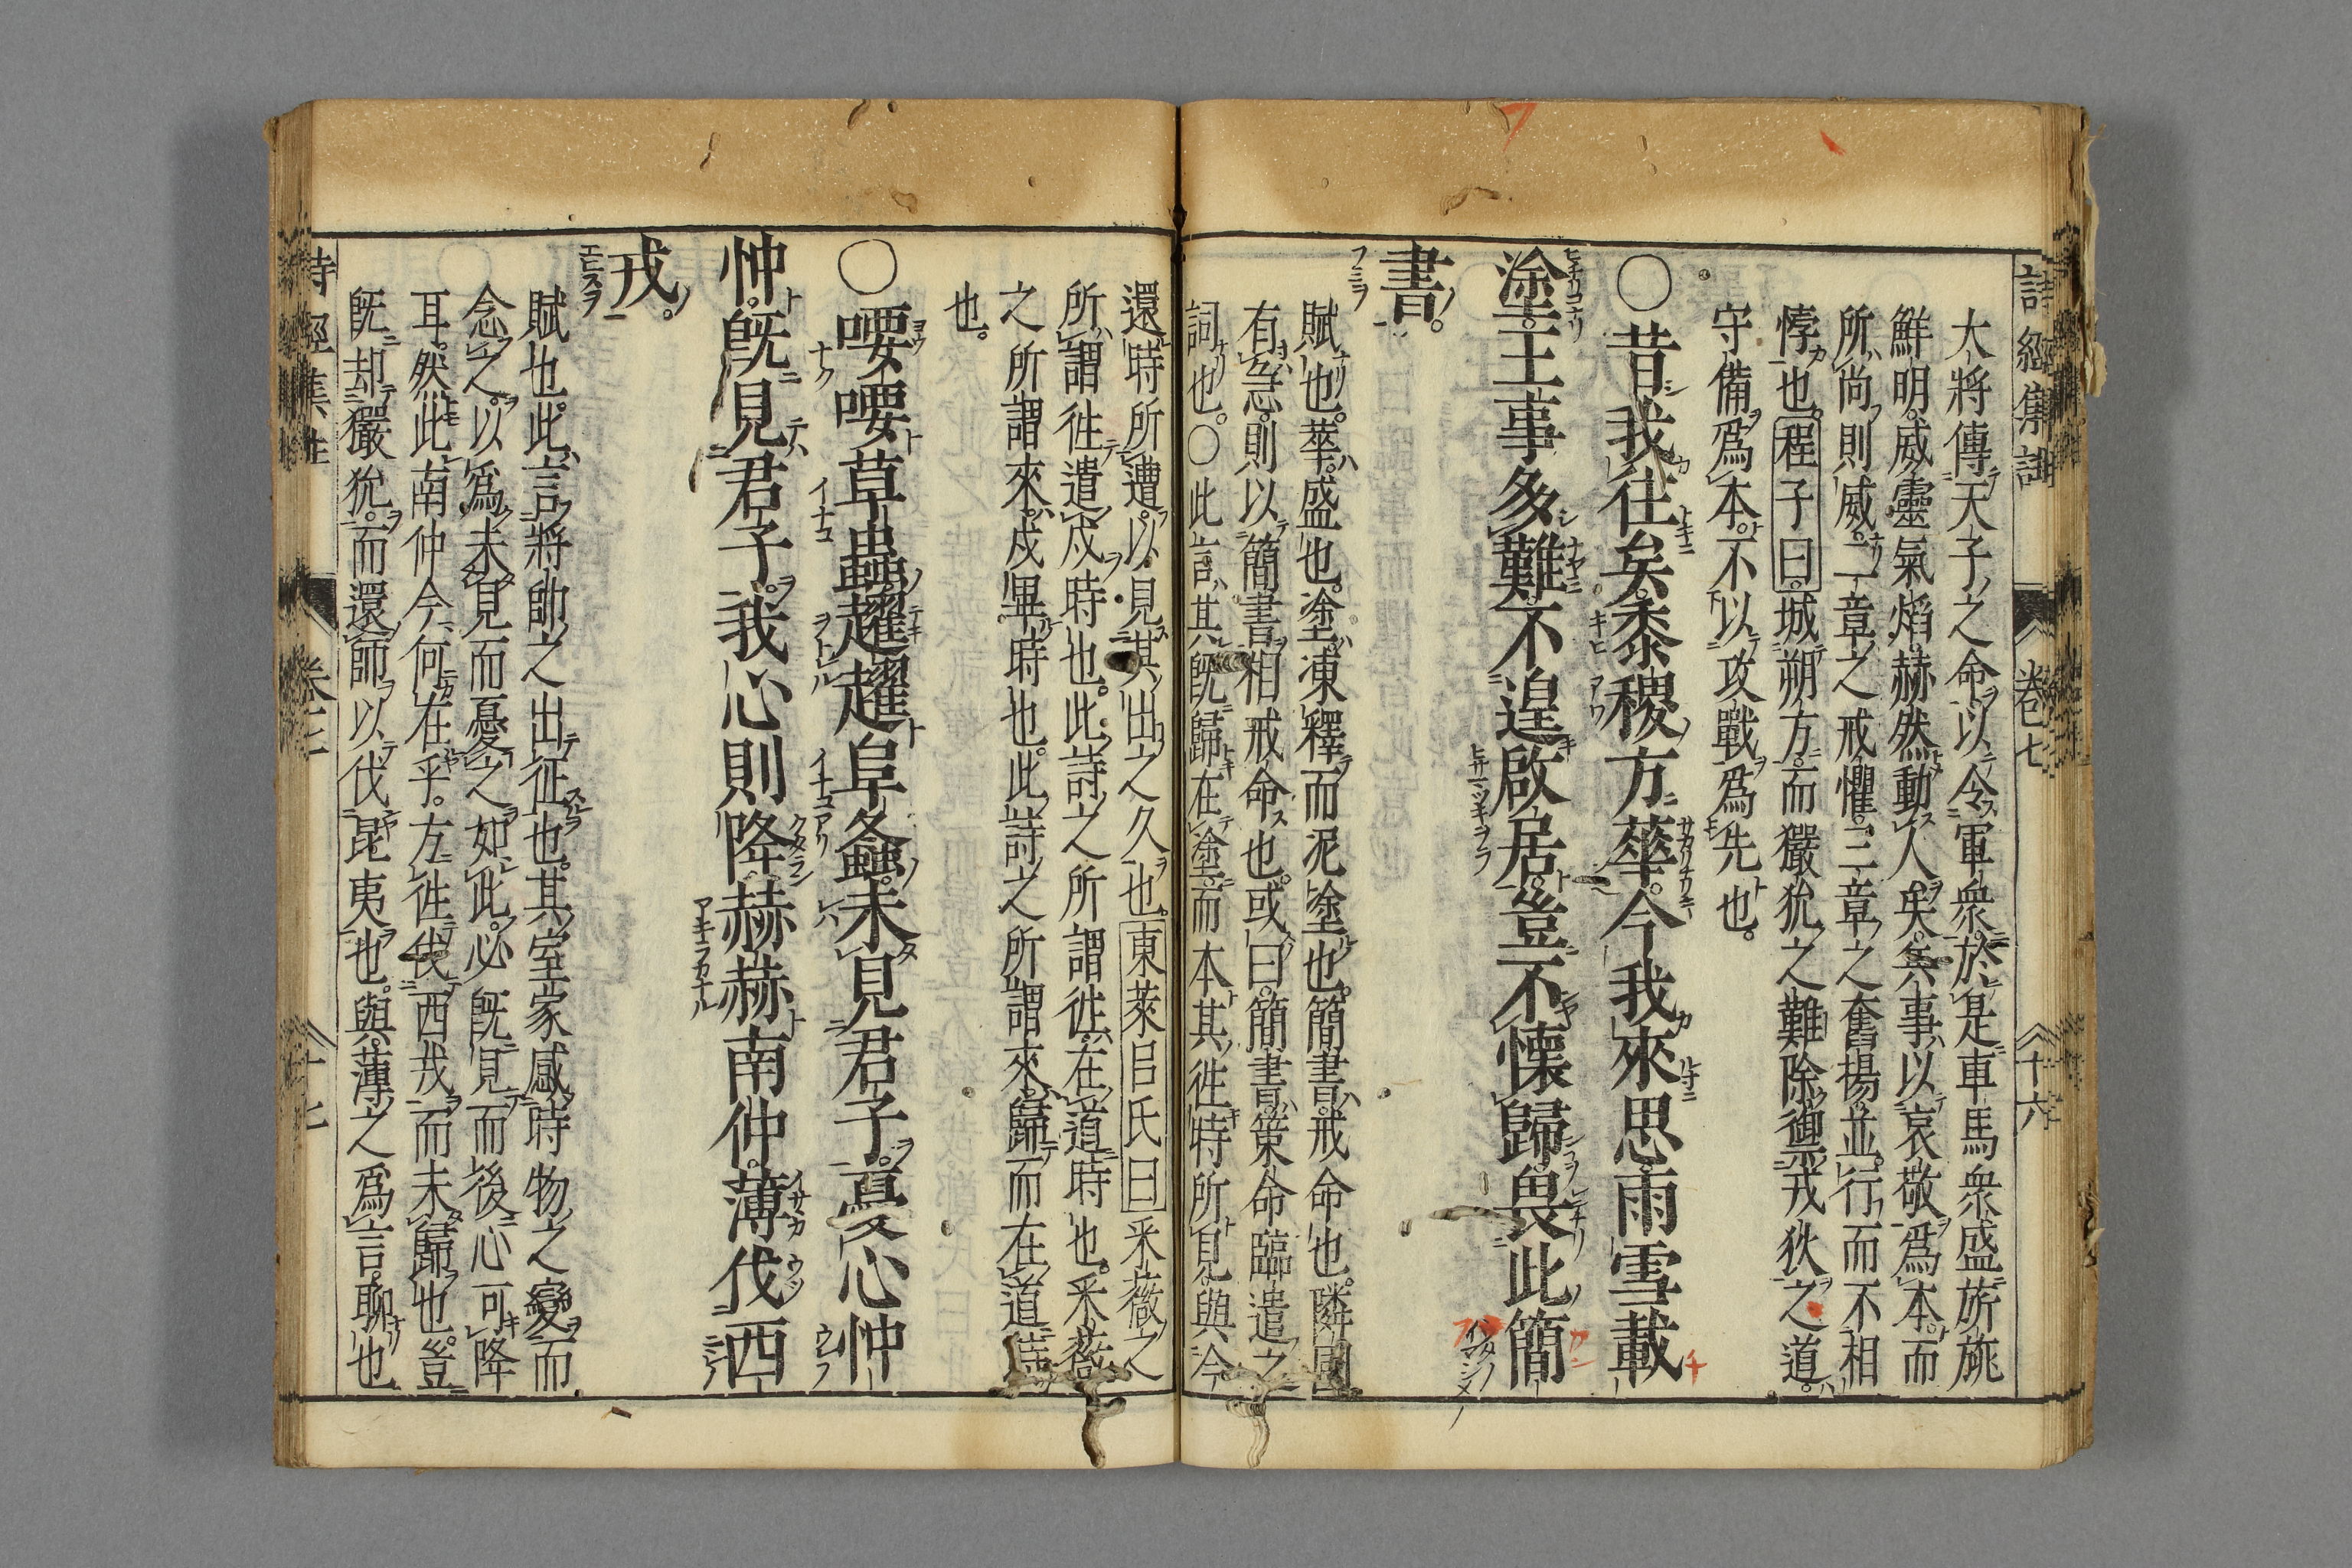 詩經集註 卷七 十六
大將傳天子之命以令軍衆於是車馬衆盛旂旐
鮮明威靈氣焰赫然動人矣兵事以哀敬爲本而
所尚則威二章之戒懼三章之奮揚並行而不相
悖也程子曰城朔方而玁狁之難除禦戎狄之道
守備爲本不以攻戰爲先也。
○昔我往矣黍稷方華今我來思雨雪載
塗王事多難不遑啟居豈不懷歸畏此簡
書。
賦也。華盛也。塗凍釋而泥塗也。簡書戒命也。隣國
有急則以簡書相戒命也。或曰簡書策命臨遣之
詞也。○此言其旣歸在塗而本其徃時所見與今
還時所遭以見其出之久也。東萊呂氏曰采薇之
所謂徃遣戍時也。此詩之所謂徃在道時也。采薇
之所謂來戍畢時也。此詩之所謂來歸而在道時
也。
○喓喓草蟲趯趯阜螽未見君子憂心忡
忡旣見君子。我心則降赫赫南仲薄伐西
戎。
賦也。此言將帥之出征也。其室家感時物之變而
念之以爲未見而憂之如此。必旣見而後心可降
耳。然此南仲今何在乎。方徃伐西戎而未歸也。豈
旣却玁狁而還師以伐昆夷也。與薄之爲言聊也
詩經集註 卷七 十七